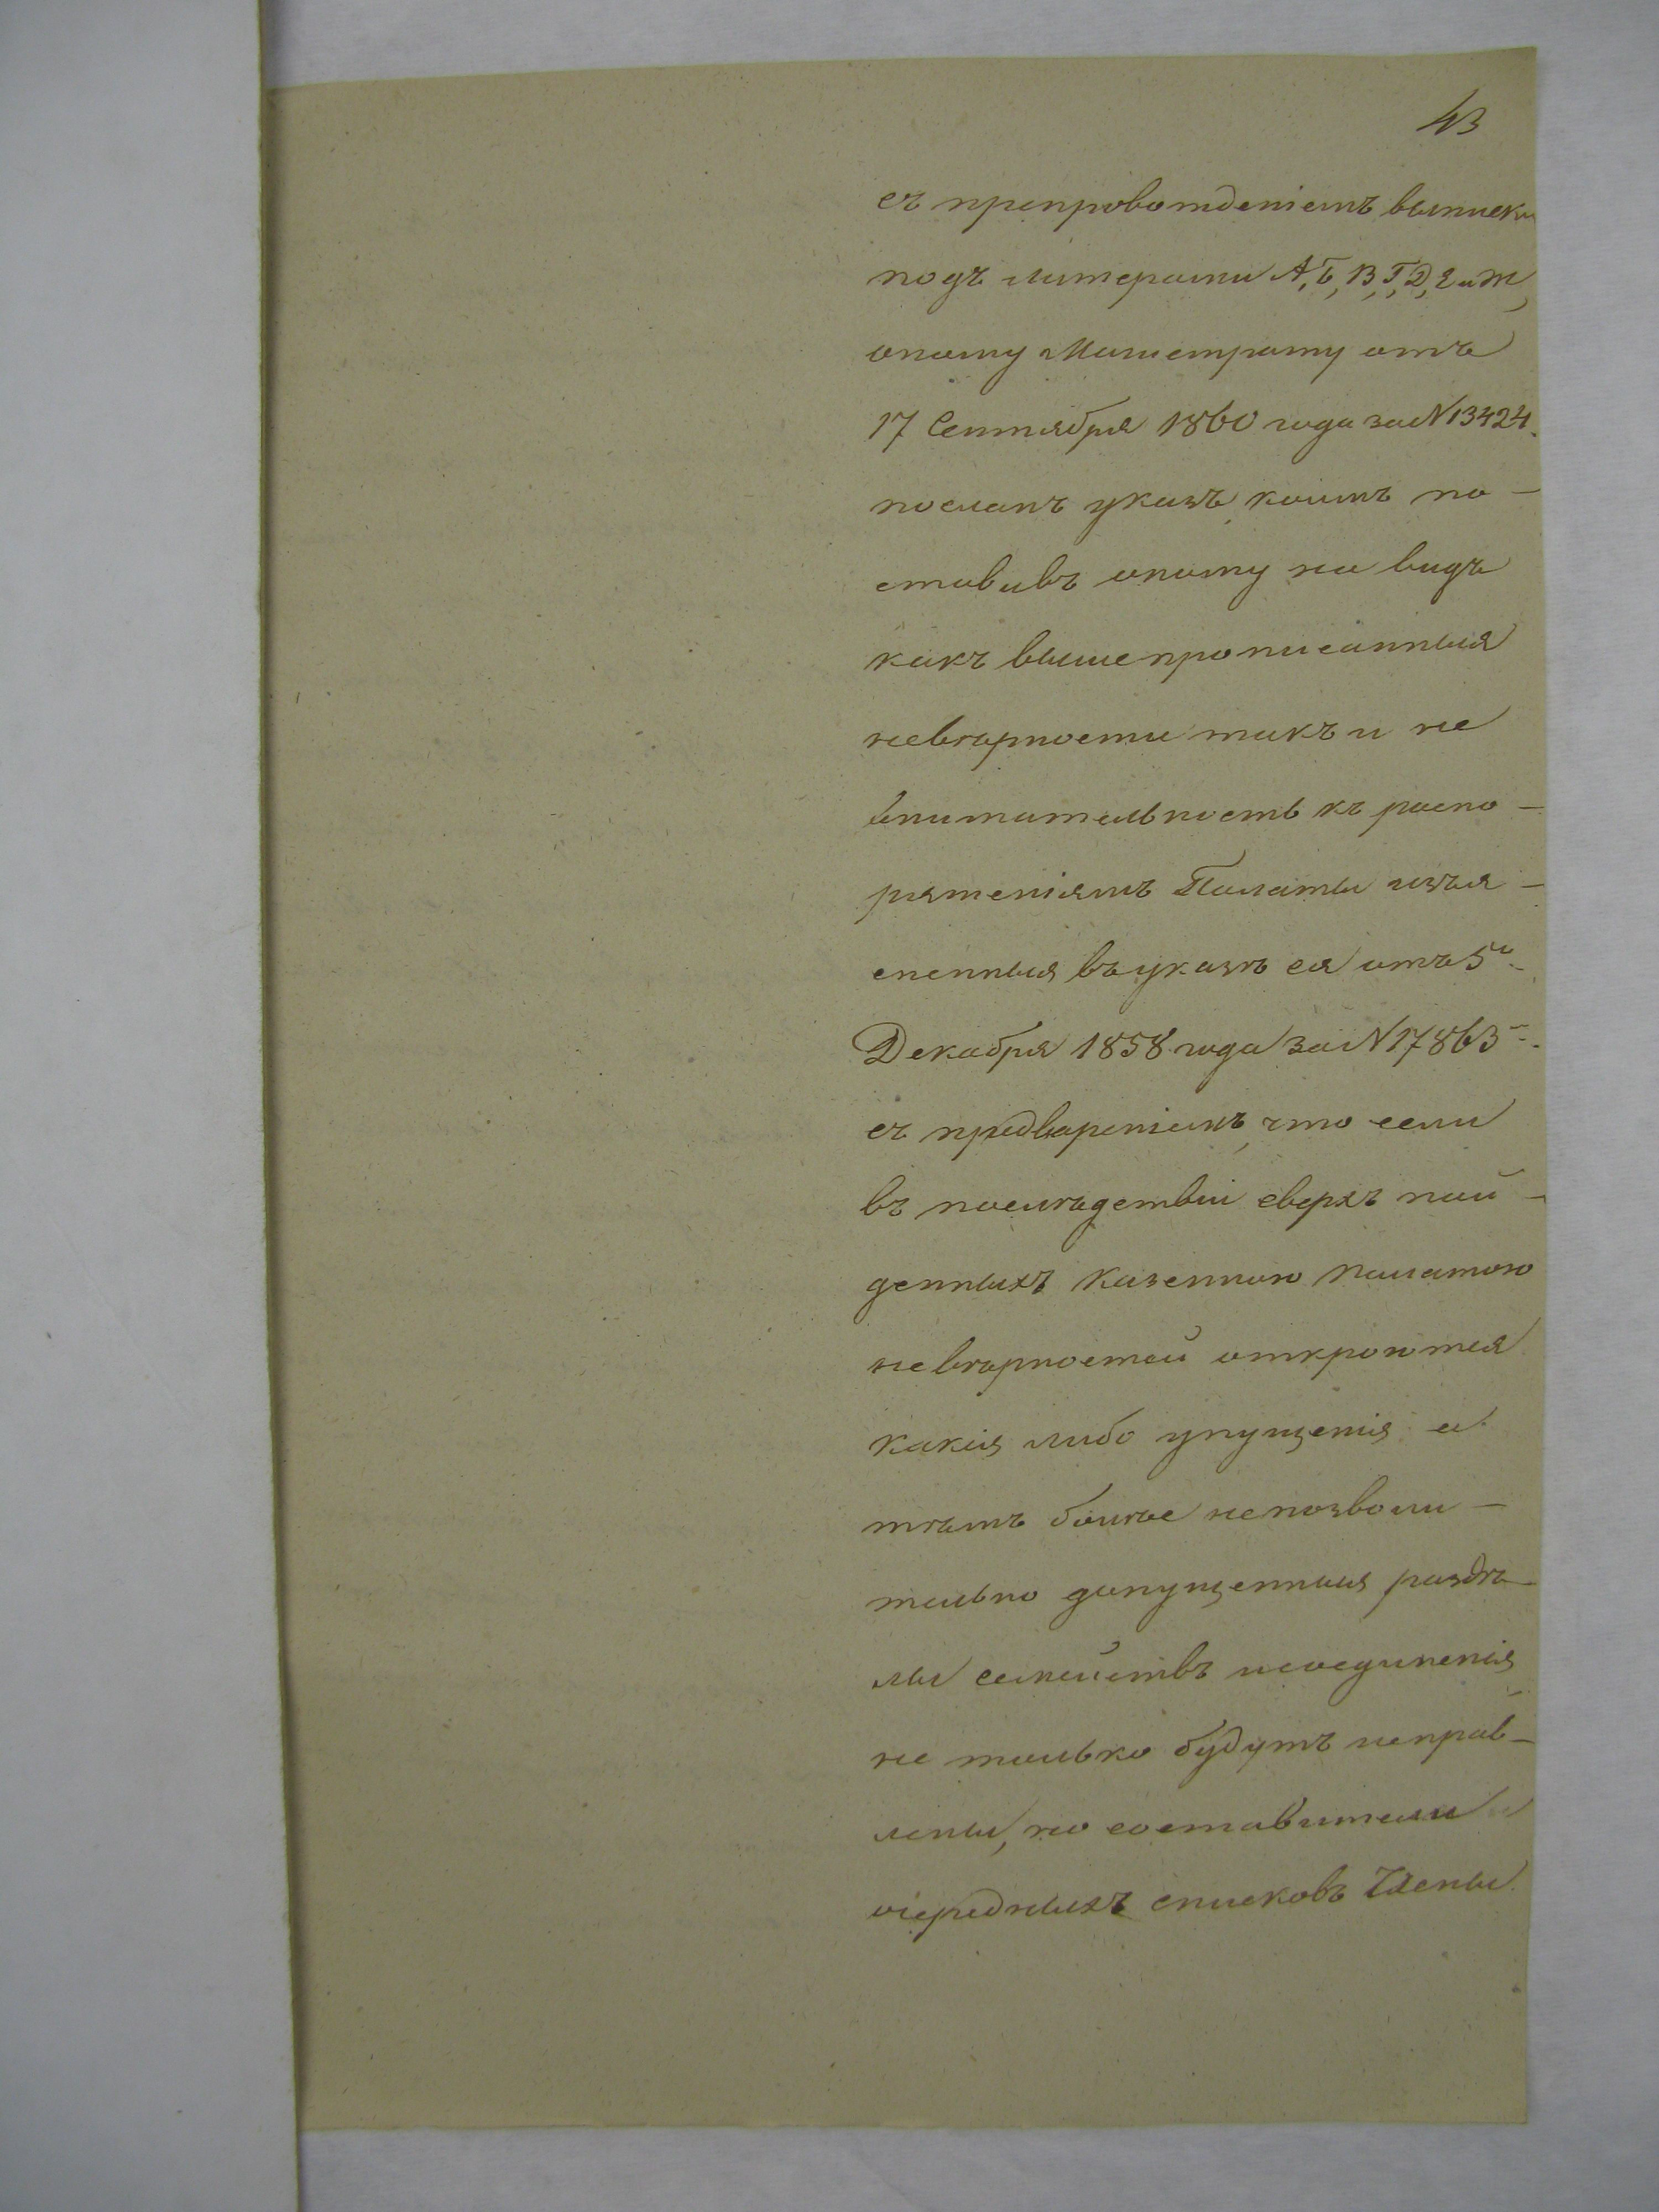 43
съ препровожденiемъ выписки
подъ литерами А, Б, В, Г, Д, Е и Ж,
оному Магистрату отъ
17 Сентября 1860 года за N 13424.
посланъ указъ коимъ по-
ставивъ оному на видъ
какъ вышепрописанныя
невѣрности такъ и не
внимательность къ распо-
ряженiямъ Палаты изъя-
сненныя въ указѣ ея отъ 5го
Декабря 1858 года за N 17863-.
съ предваренiемъ, что если
въ послѣдствiи сверхъ най-
денныхъ Казенною палатою
невѣрностей откроются
какiя либо упущенiя а
тѣмъ болѣе непозволи-
тельно допущенныя раздѣ-
лы семействъ исоединенiя
не только будутъ исправ-
лены, но составители
очередныхъ списковъ Члены